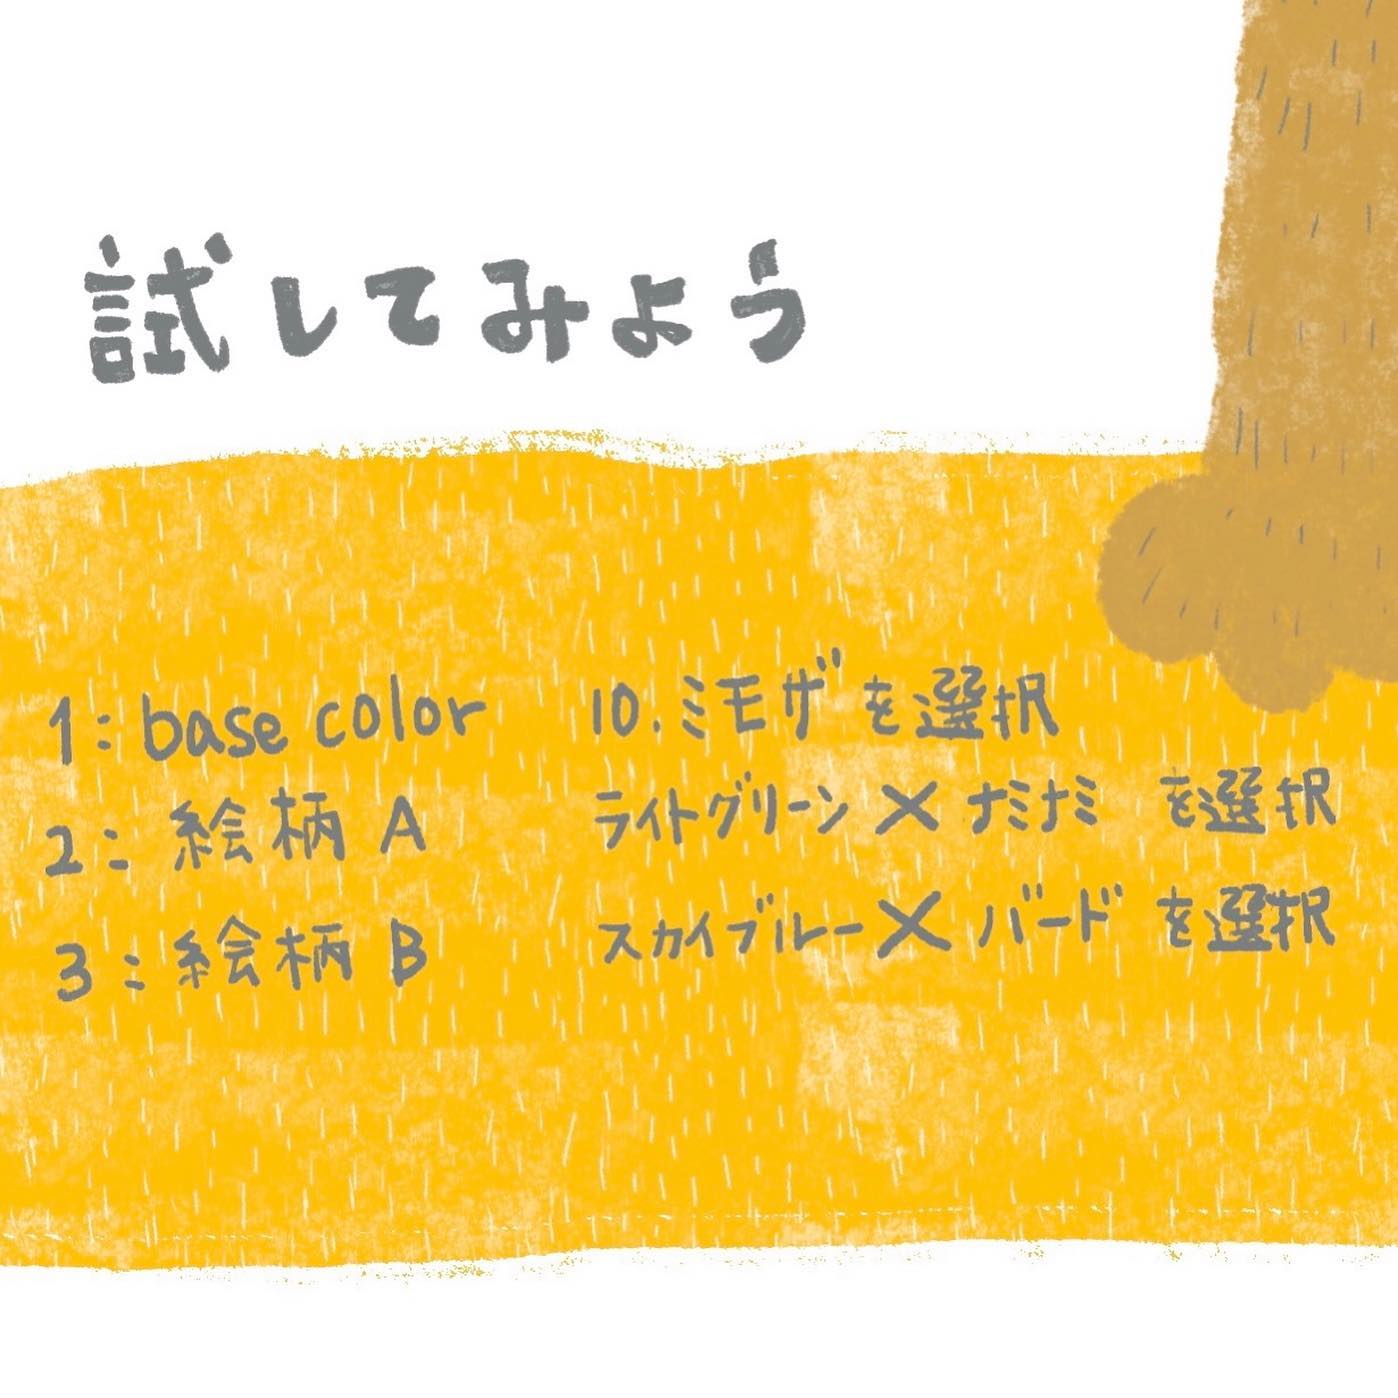 試してみよう
1: base color 10.ミモザを選択
2: 絵柄 A ライトグリーン×ナミナミ を選択
3: 絵柄 B スカイブルー×バード を選択